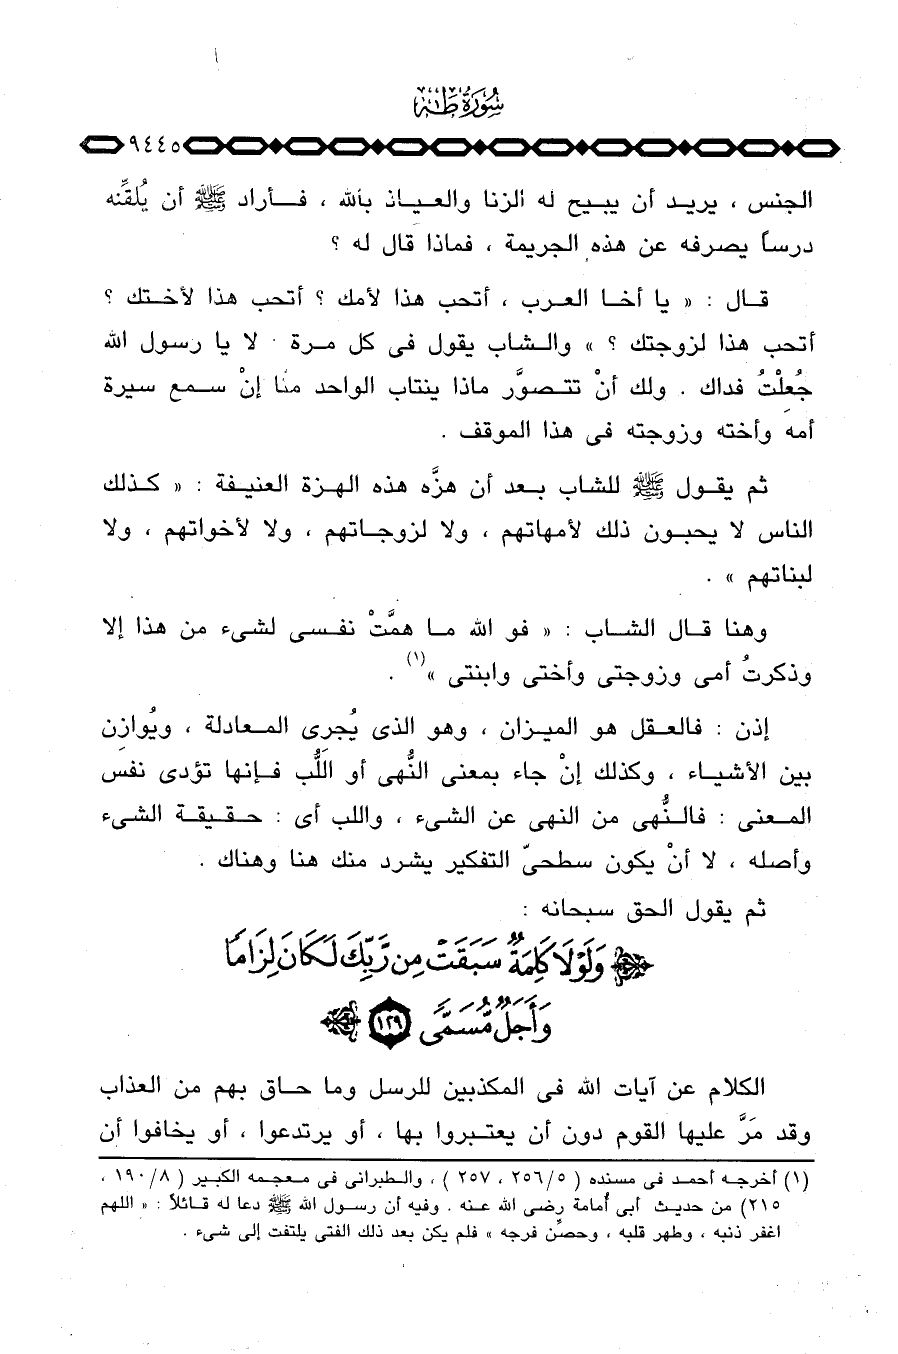 سُورَةُ طٰهٰ
٩٤٤٥
الجنس ، يريد أن يبيح له الزنا والعياذ بالله ، فأراد ﷺ أن يُلقِّنه
درساً يصرفه عن هذه الجريمة ، فماذا قال له ؟
قال : « يا أخا العرب ، أتحب هذا لأمك ؟ أتحب هذا لأختك ؟
أتحب هذا لزوجتك ؟ » والشاب يقول فى كل مرة : لا يا رسول الله
جُعلْتُ فداك . ولك أنْ تتصوَّر ماذا ينتاب الواحد منا إنْ سمع سيرة
أمه وأخته وزوجته فى هذا الموقف .
ثم يقول ﷺ للشاب بعد أن هزَّه هذه الهزة العنيفة : « كذلك
الناس لا يحبون ذلك لأمهاتهم ، ولا لزوجاتهم ، ولا لأخواتهم ، ولا
لبناتهم » .
وهنا قال الشاب : « فو الله ما همَّتْ نفسى لشىء من هذا إلا
وذكرتُ أمى وزوجتى وأختى وابنتى »(١) .
إذن : فالعقل هو الميزان ، وهو الذى يُجرى المعادلة ، ويُوازن
بين الأشياء ، وكذلك إنْ جاء بمعنى النُّهى أو اللُّب فإنها تؤدى نفس
المعنى : فالنُّهى من النهى عن الشىء ، واللب أى : حقيقة الشىء
وأصله ، لا أنْ يكون سطحىّ التفكير يشرد منك هنا وهناك .
ثم يقول الحق سبحانه :
﴿ وَلَوْلَا كَلِمَةٌ سَبَقَتْ مِن رَّبِّكَ لَكَانَ لِزَامًا
وَأَجَلٌ مُّسَمًّى ١٢٩ ﴾
الكلام عن آيات الله فى المكذبين للرسل وما حاق بهم من العذاب
وقد مَرَّ عليها القوم دون أن يعتبروا بها ، أو يرتدعوا ، أو يخافوا أن
(١) أخرجه أحمد فى مسنده ( ٢٥٦/٥ ، ٢٥٧ ) ، والطبرانى فى معجمه الكبير ( ١٩٠/٨ ،
٢١٥) من حديث أبى أمامة رضى الله عنه . وفيه أن رسول الله ﷺ دعا له قائلاً : « اللهم
اغفر ذنبه ، وطهر قلبه ، وحصِّن فرجه » فلم يكن بعد ذلك الفتى يلتفت إلى شىء .